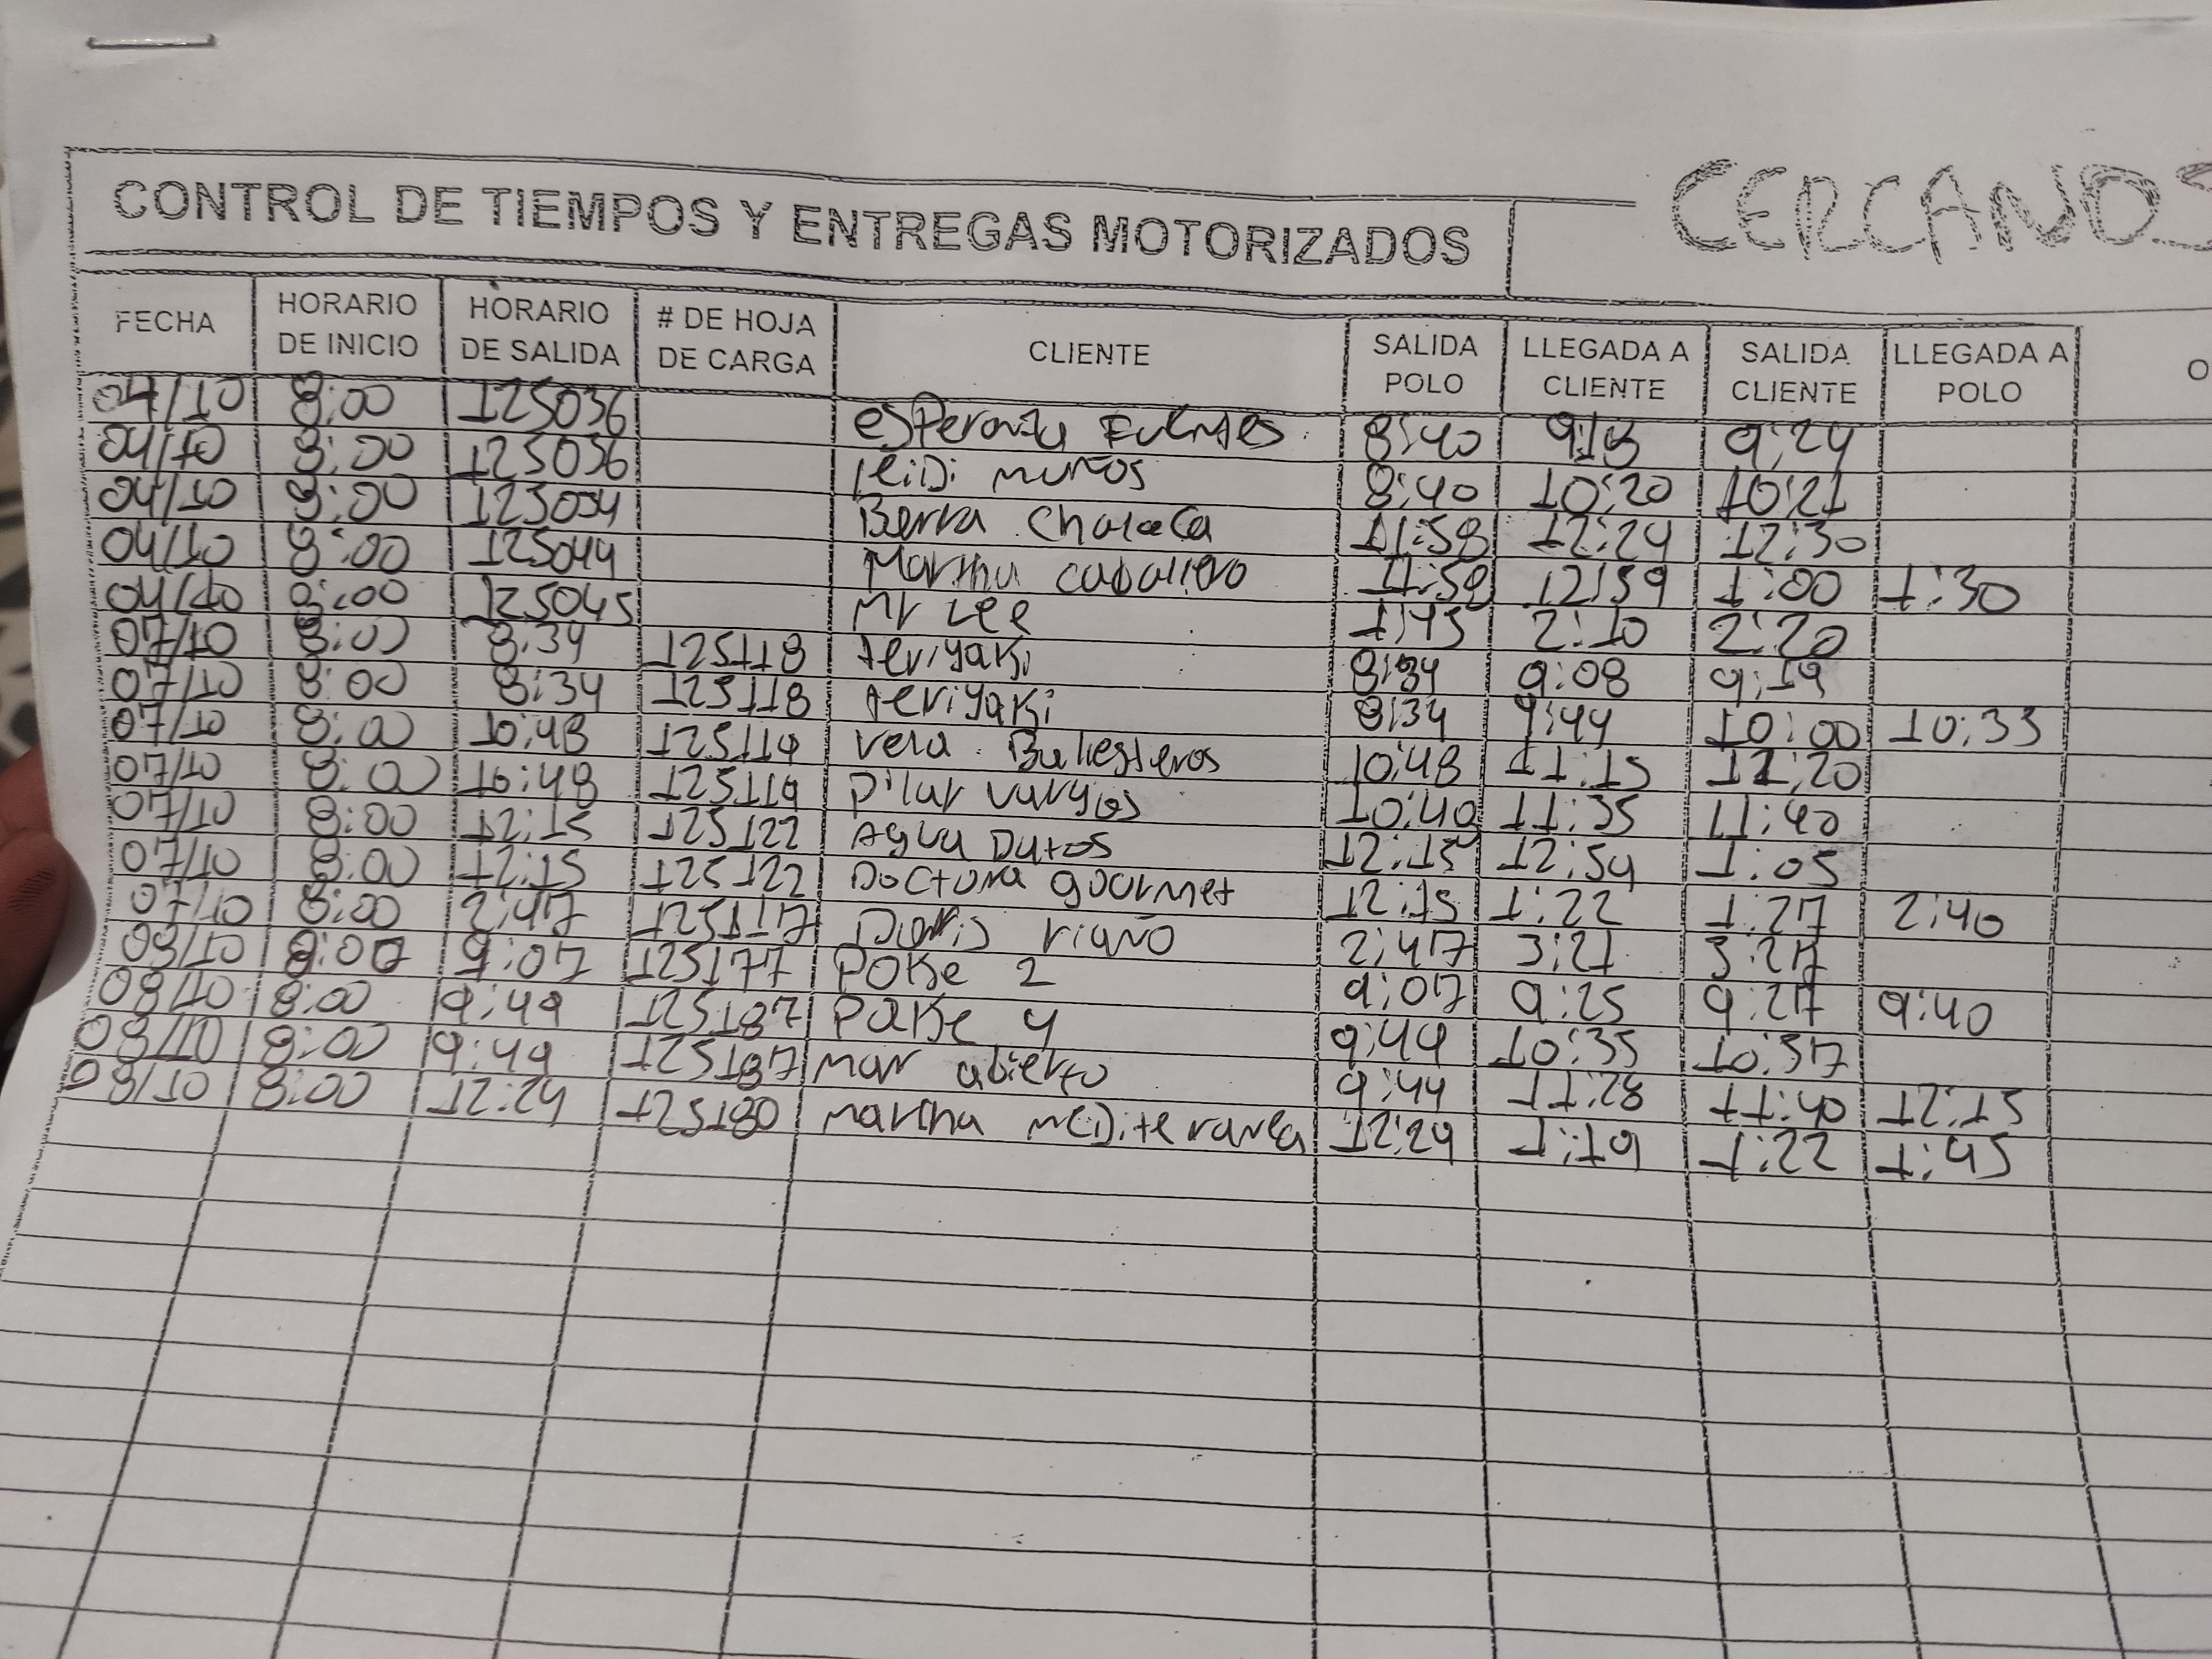 CERCANOS
CONTROL DE TIEMPOS Y ENTREGAS MOTORIZADOS
FECHA HORARIO DE INICIO HORARIO DE SALIDA # DE HOJA DE CARGA CLIENTE SALIDA POLO LLEGADA A CLIENTE SALIDA CLIENTE LLEGADA A POLO O
04/10 8:00 125036 esperanza Fuentes 8:40 9:24
04/10 8:00 125036 leiDi muños 8:40 10:20 10:21
04/10 8:00 125034 Barra Chalaca 11:58 12:24 12:30
04/10 8:00 125044 Martha caballero 11:58 12:59 1:00 1:30
04/10 8:00 125045 Mr Lee 1:45 2:10 2:20
07/10 8:00 8:34 125118 teriyaki 8:34 9:08 9:19
07/10 8:00 8:34 125118 teriyaki 8:34 9:44 10:00 10:33
07/10 8:00 10:48 125119 vera Ballesteros 10:48 11:15 11:20
07/10 8:00 10:48 125119 Pilar vargas 10:40 11:35 11:40
07/10 8:00 12:15 125122 Agua Dutos 12:15 12:54 1:05
07/10 8:00 12:15 125122 Doctora gourmet 12:15 1:22 1:27 2:40
07/10 8:00 2:47 125117 Doris riaño 2:47 3:21 3:27
08/10 8:00 9:07 125177 POKe 2 9:07 9:25 9:27 9:40
08/10 8:00 9:49 125187 POKe 4 9:49 10:35 10:37
08/10 8:00 9:49 125187 mar abierto 9:44 11:28 11:40 12:15
08/10 8:00 12:24 125180 marthu meDiterranea 12:24 1:19 1:22 1:45